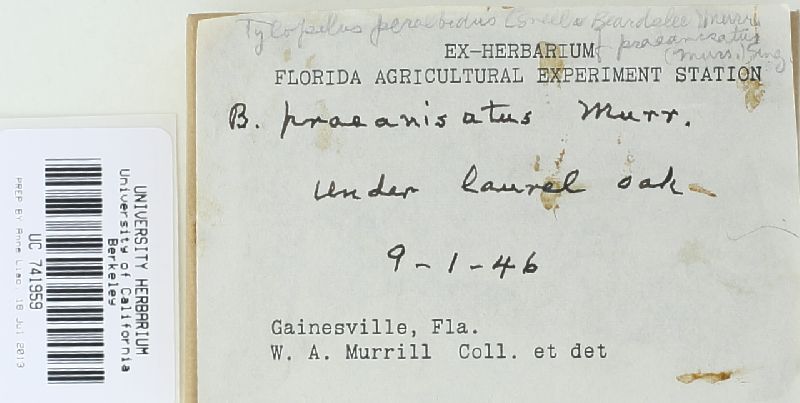 Tylopilus peralbidus (Snell & Beardslee) Murr.
f. praeanisatus
(Murr.) Sing.
EX-HERBARIUM
FLORIDA AGRICULTURAL EXPERIMENT STATION
B. praeanisatus Murr.
under laurel oak
9-1-46
Gainesville, Fla.
W. A. Murrill Coll. et det
UNIVERSITY HERBARIUM
University of California
Berkeley
UC 741959
PREP BY Anna Liao, 18 Jul 2013